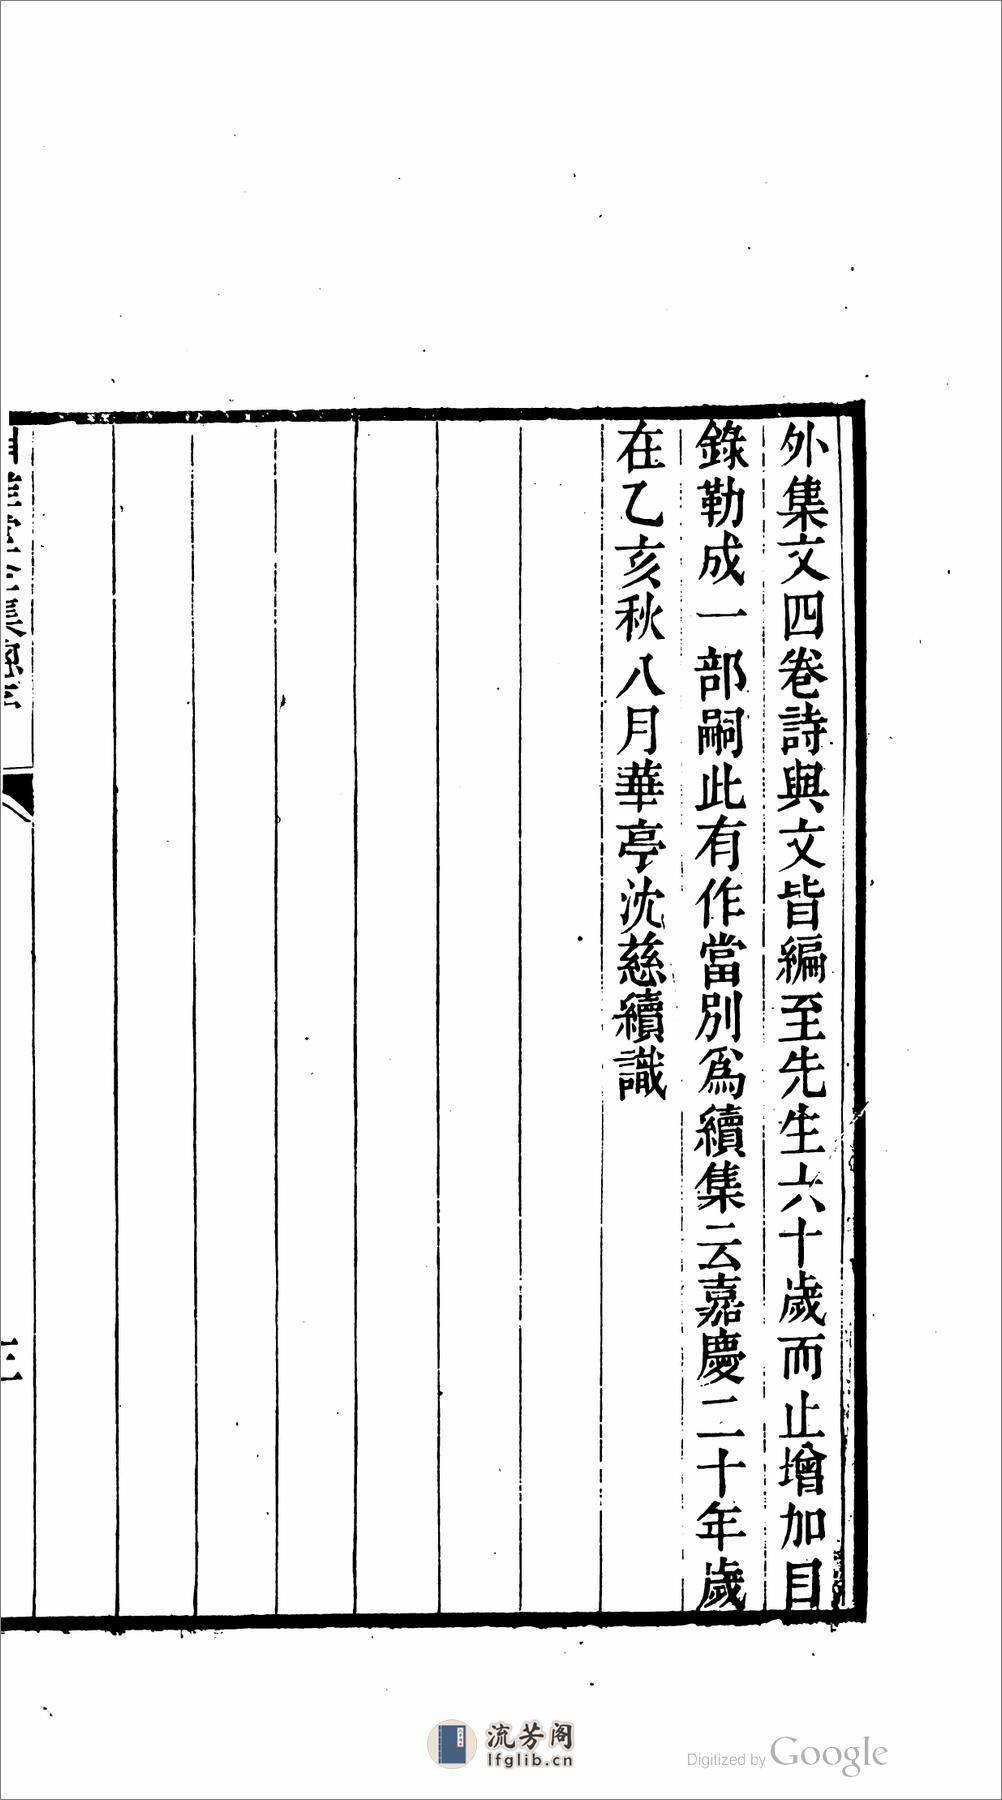 外集文四卷詩與文皆編至先生六十歲而止增加目
錄勒成一部嗣此有作當別爲續集云嘉慶二十年歲
在乙亥秋八月華亭沈慈續識
三
流芳阁
lfglib.cn
Digitized by Google